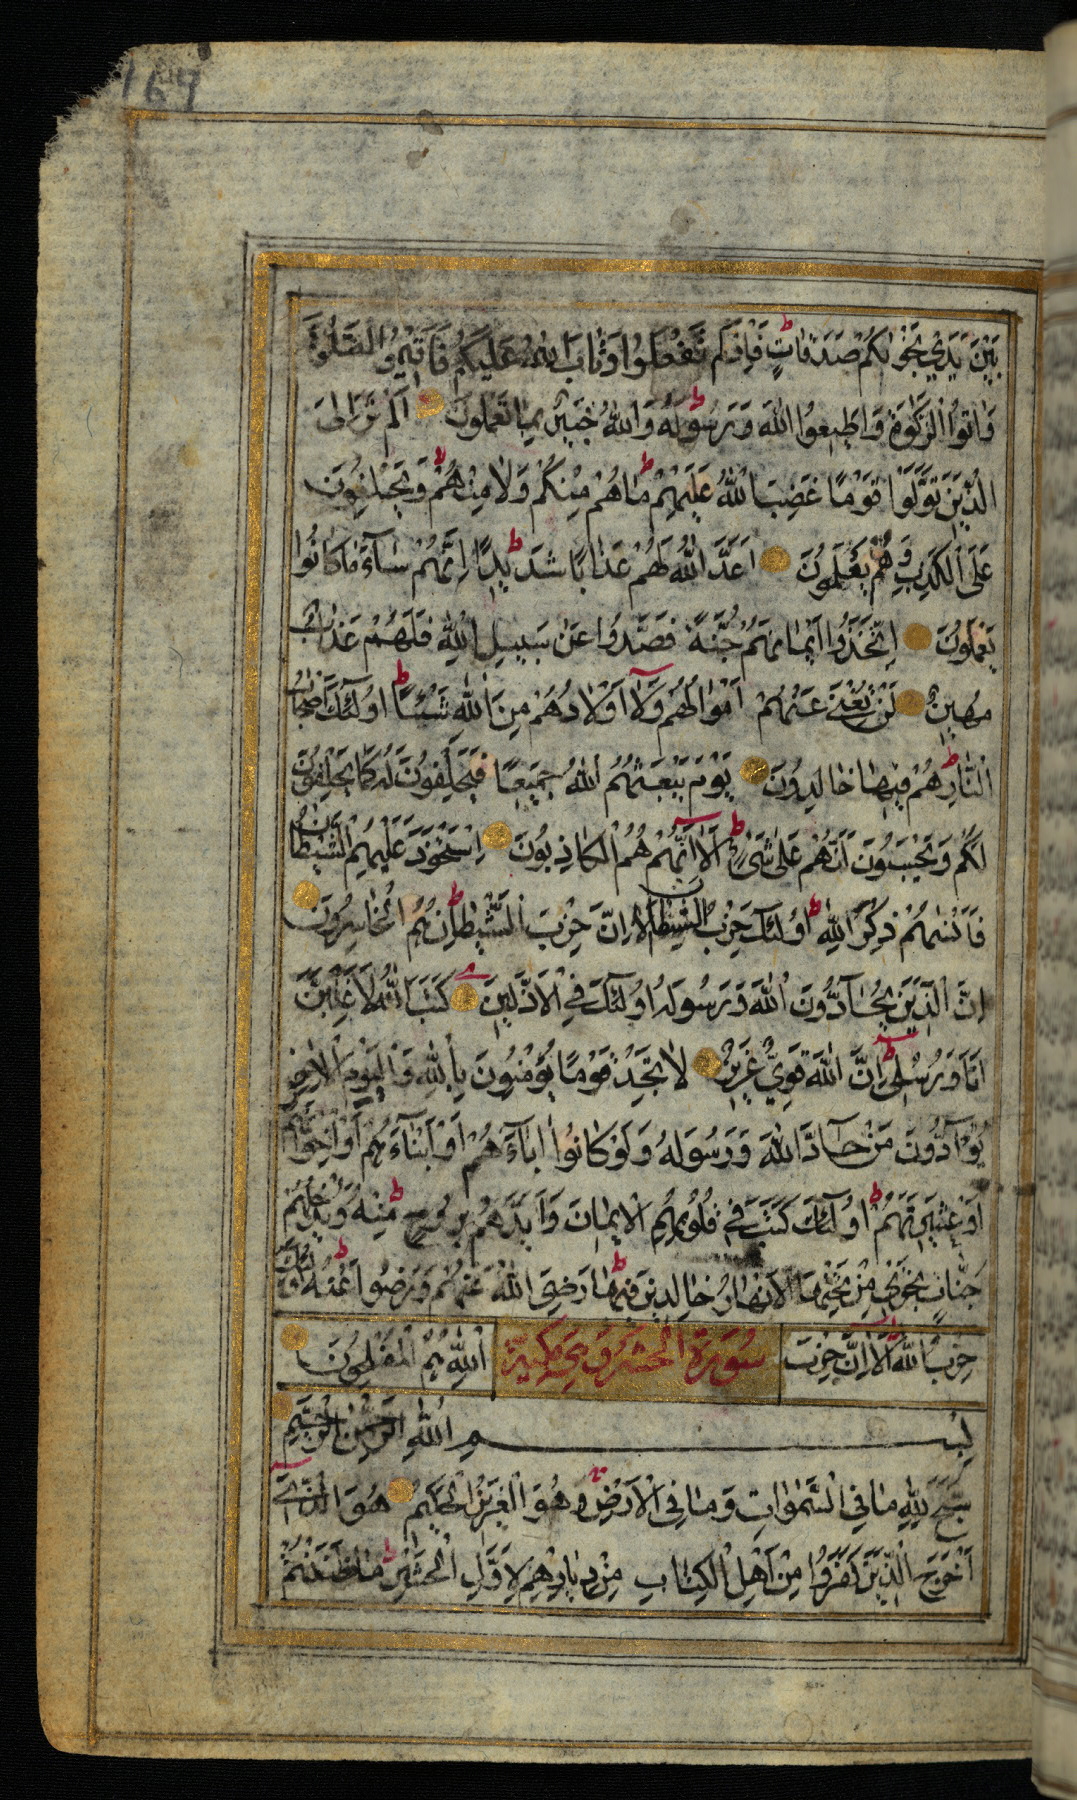 169
بَيْنَ يَدَيْ نَجْوٰيكُمْ صَدَقَاتٍ ط فَاِذْ لَمْ تَفْعَلُوا وَتَابَ اللهُ عَلَيْكُمْ فَاَقِيمُوا الصَّلٰوةَ
وَاٰتُوا الزَّكٰوةَ وَاَطِيعُوا اللهَ وَرَسُولَهُ ط وَاللهُ خَبِيرٌ بِمَا تَعْمَلُونَ اَلَمْ تَرَ اِلَى
الَّذِينَ تَوَلَّوْا قَوْمًا غَضِبَ اللهُ عَلَيْهِمْ ط مَا هُمْ مِنْكُمْ وَلَا مِنْهُمْ لا وَيَحْلِفُونَ
عَلَى الْكَذِبِ وَهُمْ يَعْلَمُونَ اَعَدَّ اللهُ لَهُمْ عَذَابًا شَدِيدًا ط اِنَّهُمْ سَآءَ مَا كَانُوا
يَعْمَلُونَ اِتَّخَذُوا اَيْمَانَهُمْ جُنَّةً فَصَدُّوا عَنْ سَبِيلِ اللهِ فَلَهُمْ عَذَابٌ
مُهِينٌ لَنْ تُغْنِيَ عَنْهُمْ اَمْوَالُهُمْ وَلَآ اَوْلَادُهُمْ مِنَ اللهِ شَيْئًا ط اُولٰئِكَ اَصْحَابُ
النَّارِ ط هُمْ فِيهَا خَالِدُونَ يَوْمَ يَبْعَثُهُمُ اللهُ جَمِيعًا فَيَحْلِفُونَ لَهُ كَمَا يَحْلِفُونَ
لَكُمْ وَيَحْسَبُونَ اَنَّهُمْ عَلٰى شَيْءٍ ط اَلَآ اِنَّهُمْ هُمُ الْكَاذِبُونَ اِسْتَحْوَذَ عَلَيْهِمُ الشَّيْطَانُ
فَاَنْسٰيهُمْ ذِكْرَ اللهِ ط اُولٰئِكَ حِزْبُ الشَّيْطَانِ ط اَلَآ اِنَّ حِزْبَ الشَّيْطَانِ هُمُ الْخَاسِرُونَ
اِنَّ الَّذِينَ يُحَآدُّونَ اللهَ وَرَسُولَهُ اُولٰئِكَ فِي الْاَذَلِّينَ كَتَبَ اللهُ لَاَغْلِبَنَّ
اَنَا وَرُسُلِي ط اِنَّ اللهَ قَوِيٌّ عَزِيزٌ لَا تَجِدُ قَوْمًا يُؤْمِنُونَ بِاللهِ وَالْيَوْمِ الْاٰخِرِ
يُوَآدُّونَ مَنْ حَآدَّ اللهَ وَرَسُولَهُ وَلَوْ كَانُوا اٰبَآءَهُمْ اَوْ اَبْنَآءَهُمْ اَوْ اِخْوَانَهُمْ
اَوْ عَشِيرَتَهُمْ ط اُولٰئِكَ كَتَبَ فِي قُلُوبِهِمُ الْاِيمَانَ وَاَيَّدَهُمْ بِرُوحٍ مِنْهُ ط وَيُدْخِلُهُمْ
جَنَّاتٍ تَجْرِي مِنْ تَحْتِهَا الْاَنْهَارُ خَالِدِينَ فِيهَا ط رَضِيَ اللهُ عَنْهُمْ وَرَضُوا عَنْهُ ط اُولٰئِكَ
حِزْبُ اللهِ ط اَلَآ اِنَّ حِزْبَ سُورَةُ الْحَشْرِ وَهِيَ اللهِ هُمُ الْمُفْلِحُونَ
بِسْمِ اللهِ الرَّحْمٰنِ الرَّحِيمِ
سَبَّحَ لِلّٰهِ مَا فِي السَّمٰوَاتِ وَمَا فِي الْاَرْضِ وَهُوَ الْعَزِيزُ الْحَكِيمُ هُوَ الَّذِي
اَخْرَجَ الَّذِينَ كَفَرُوا مِنْ اَهْلِ الْكِتَابِ مِنْ دِيَارِهِمْ لِاَوَّلِ الْحَشْرِ ط مَا ظَنَنْتُمْ